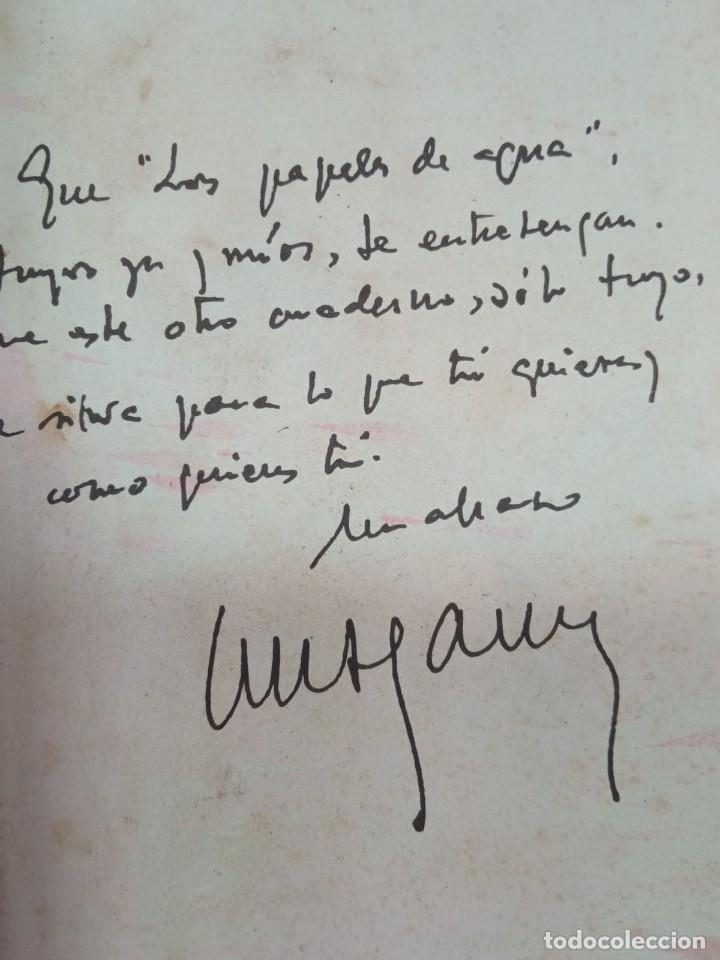 Que "Los papeles de agua",
tuyos ya y míos, te entretengan.
que este otro cuaderno, sólo tuyo,
te sirva para lo que tú quieras y
como quieras tú.
Un abrazo
todocoleccion